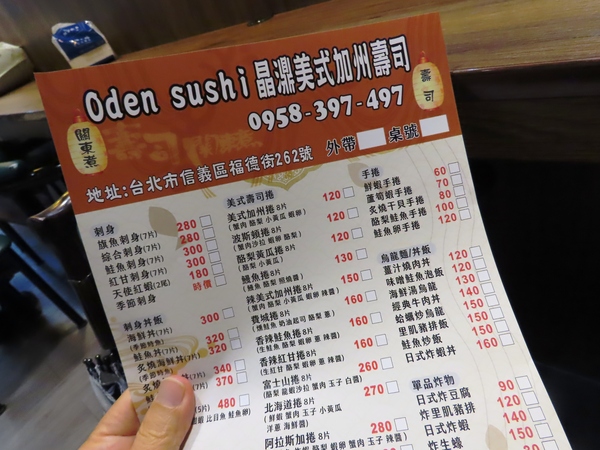 Oden sushi 晶濎美式加州壽司
0958-397-497
關東煮
壽司
外帶
桌號
地址:台北市信義區福德街262號
刺身
旗魚刺身(7片) 280
綜合刺身(7片) 280
鮭魚刺身(7片) 300
紅甘刺身(7片) 300
天使紅蝦(2尾) 180
季節刺身 時價
刺身丼飯
海鮮丼(7片) 300
(季節特魚)
鮭魚丼(7片) 320
炙燒海鮮丼(7片) 320
340
370
480
比目魚 鮭魚卵)
美式壽司捲
美式加州捲8片 120
(蟹肉 酪梨 小黃瓜 蝦卵)
波斯頓捲8片 120
(蟹肉沙拉 蝦卵 酪梨)
酪梨黃瓜捲8片 130
(酪梨 小黃瓜)
鰻魚捲8片 130
(鰻魚 酪梨 照燒醬)
辣美式加州捲8片 150
(蟹肉 酪梨 小黃瓜 蝦卵 辣醬)
費城捲8片 160
(燻鮭魚 奶油起司 酪梨 蔥)
香辣鮭魚捲8片 160
(生鮭魚 酪梨 蝦卵 蔥 辣醬)
香辣紅甘捲8片 160
(紅甘 酪梨 蝦卵 蔥 辣醬)
富士山捲8片 260
(酪梨 龍蝦沙拉 蟹肉 玉子 白醬)
北海道捲8片 270
(鮮蝦 蟹肉 玉子 小黃瓜
洋蔥 海鮮醬)
阿拉斯加捲8片
蝦卵 蟹肉 玉子 辣醬)
手捲
鮮蝦手捲 60
蘆筍蝦手捲 70
炙燒干貝手捲 80
酪梨鮭魚手捲 100
鮭魚卵手捲 120
烏龍麵/丼飯
薑汁燒肉丼 120
味噌鮭魚泡飯 120
海鮮湯烏龍 130
經典牛肉丼 150
蛤蠣炒烏龍 140
里肌豬排飯 150
鮭魚炒飯 150
日式炸蝦丼 160
單品炸物
日式炸豆腐 90
炸里肌豬排 120
日式炸蝦 140
炸生蠔 150
30